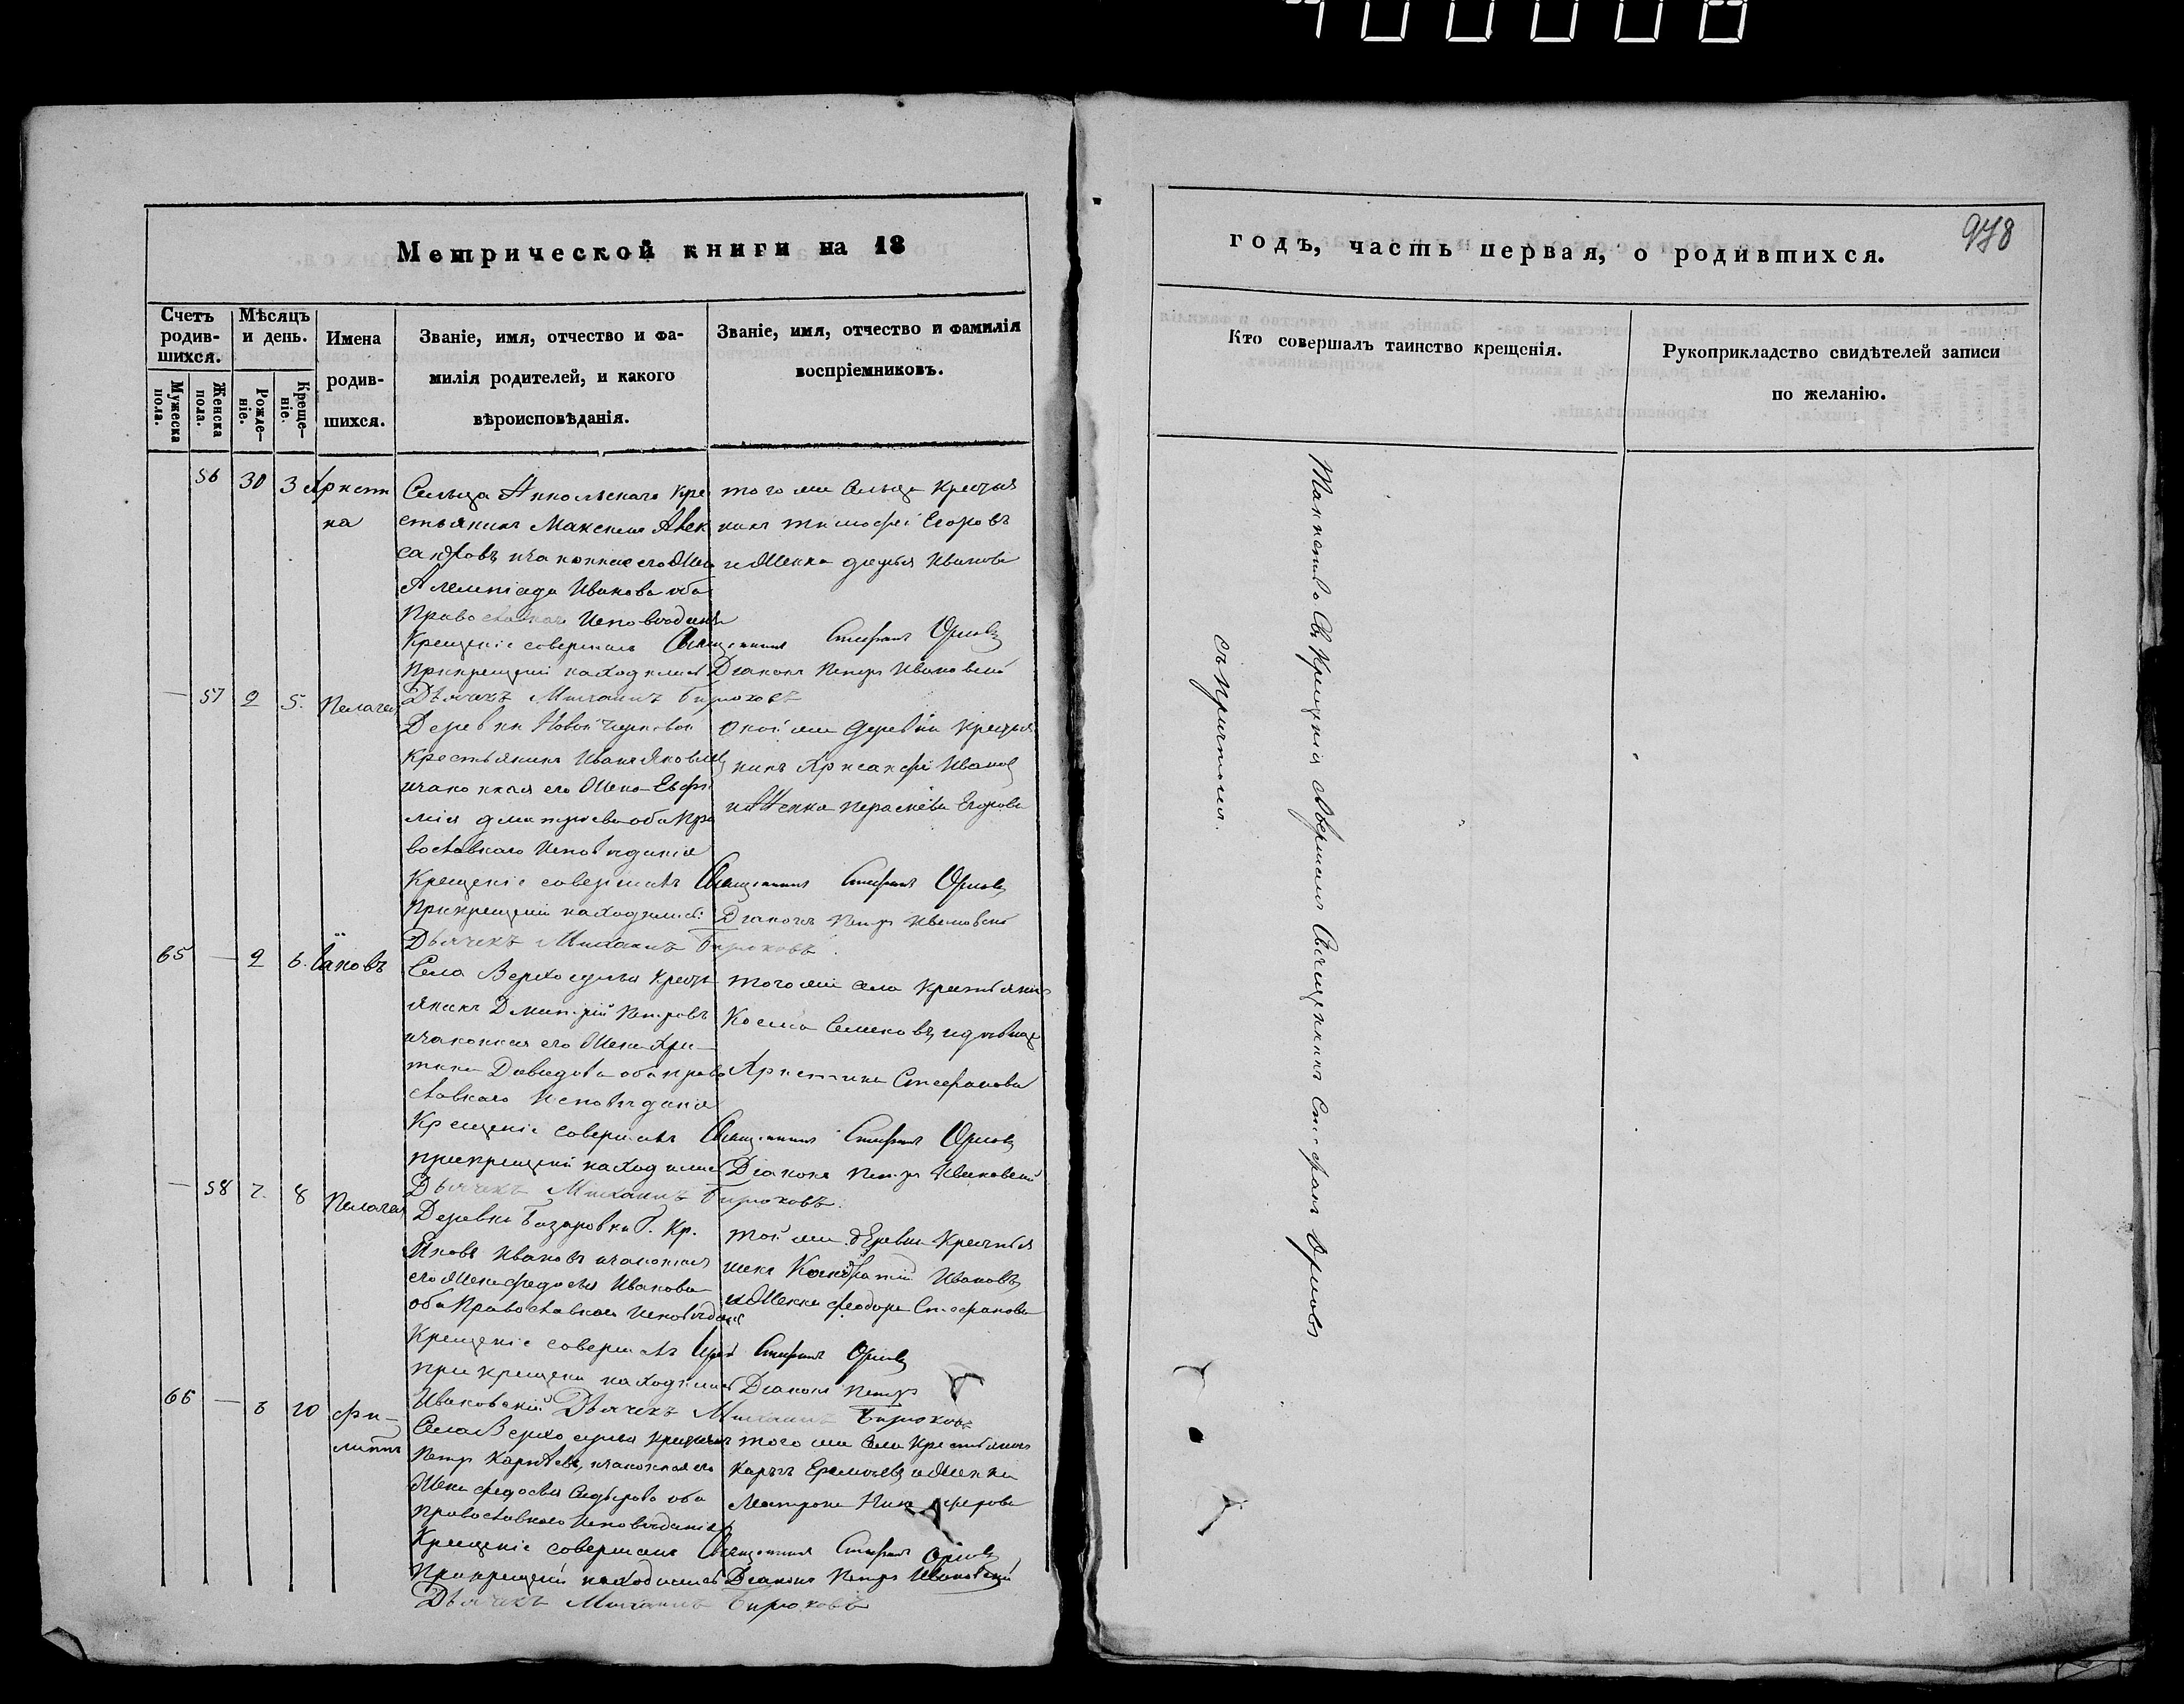 400008
Метрической книги на 18
Счетъ родив-шихся.
Мѣсяцъ и день.
Мужеска пола.
Женска пола.
Рожде-ніе.
Креще-ніе.
Имена родив-шихся.
Званіе, имя, отчество и фа-
милія родителей, и какого
вѣроисповѣданія.
Званіе, имя, отчество и фамилія
воспріемниковъ.
56 30 3 Христи
на
Сельца Кре
стьянинъ Максимъ Алек
сандровъ и законная его Жена
Иванова оба
Православнаго Исповѣданія
того же Сельца Крестья
нинъ Тимофей Егоровъ
и Женка Дарья Иванова
Крещеніе совершалъ Священникъ Стефанъ Орловъ
При крещеніи находились Діаконъ Петръ Ивановскій
Дьячекъ Михаилъ Бирюковъ
— 57 2 5. Пелагея
Деревни Новой
Крестьянинъ Иванъ Яковлевъ
и законная его Жена Евфи
мія Дмитріева оба Пра
вославнаго Исповѣданія
оной же деревни крестья
нинъ Иванов
и Женка Параскева Егорова
Крещеніе совершалъ Священникъ Стефанъ Орловъ
При крещеніи находились: Діаконъ Петръ Ивановскій
Дьячекъ Михаилъ Бирюковъ.
65 — 2 6. Іаковъ
Села Крест
янинъ Димитрій Петровъ
и законная его Жена Хри-
тина Давидова оба право
славнаго Исповѣданія
того же села Крестьянин
Косма Семеновъ, и дѣвица
Христина Стефанова
Крещеніе совершалъ Священникъ Стефанъ Орловъ
при крещеніи находились Діаконъ Петръ Ивановскій
Дьячекъ Михаилъ Бирюковъ.
— 58 7. 8 Пелагея
Деревни Кр.
Яковъ Ивановъ и законная
его Жена Федосья Иванова
оба Православнаго Исповѣданія
той же деревни Крестья
нинъ Кондратій Ивановъ,
и Женка Феодора Стефанова
Крещеніе совершалъ Іерей Стефанъ Орловъ
при крещеніи находились Діаконъ Петръ
Ивановскій Дьячекъ Михаилъ Бирюковъ
66 — 8 10 Фи-
липпъ
Села Крестьянинъ
Петръ Карповъ, и законная его
Жена Федосья Сидорова оба
православнаго Исповѣданія
того же Села Крестьянинъ
Карпъ и Женка
Матрона Никифорова
Крещеніе совершалъ Священникъ Стефанъ Орловъ
При крещеніи находились Діаконъ Петръ Ивановскій
Дьячекъ Михаилъ Бирюковъ
годъ, часть первая, о родившихся.
978
Кто совершалъ таинство крещенія.
Рукоприкладство свидѣтелей записи
по желанію.
Таинство Св. Крещенія совершалъ Священникъ Стефанъ Орловъ
съ причтомъ.